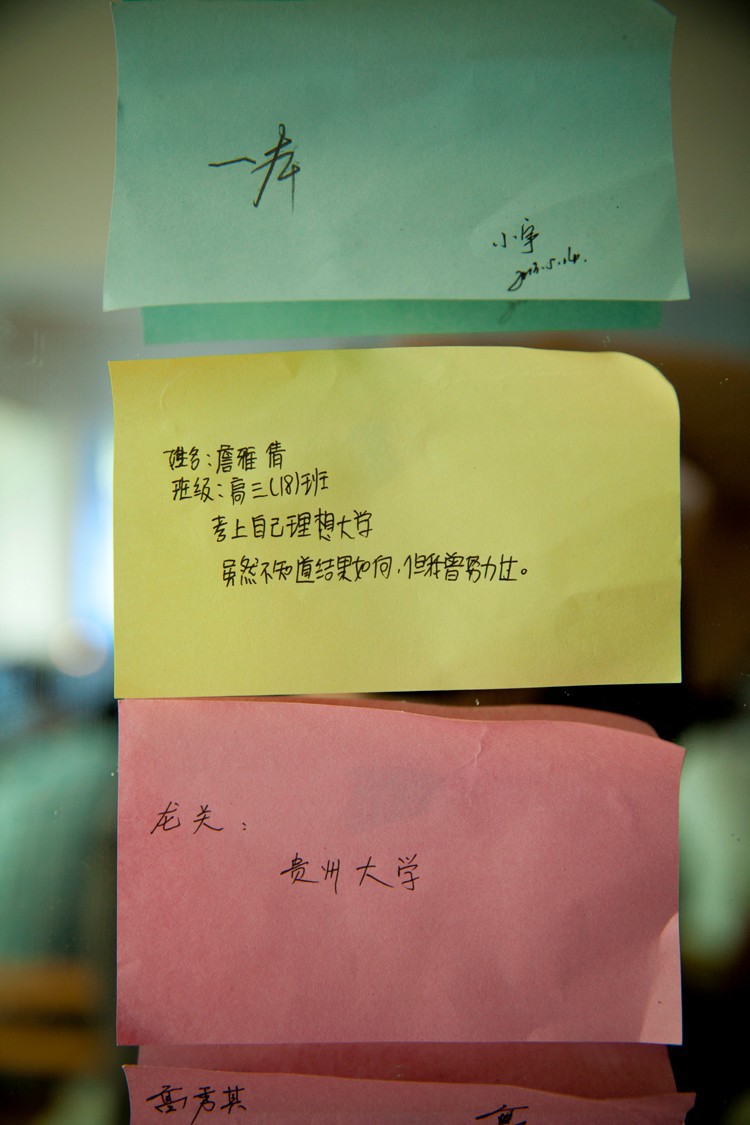 一本
小宇
2013.5.14.
姓名:詹雅倩
班级:高三(18)班
考上自己理想大学
虽然不知道结果如何,但我曾努力过。
龙关:
贵州大学
高秀其